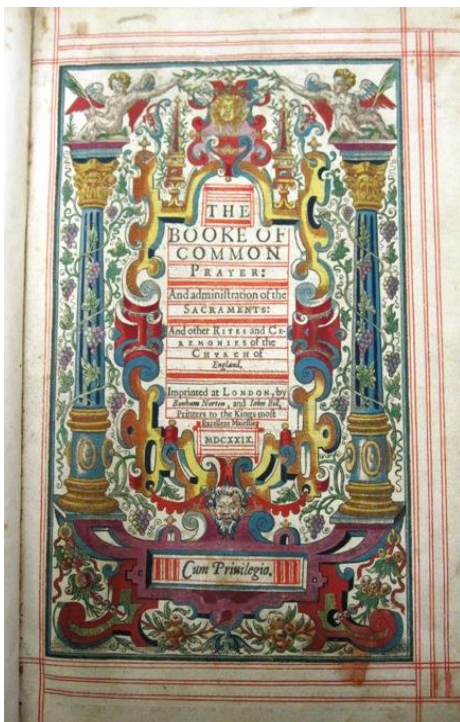 THE
BOOKE OF
COMMON
PRAYER:
And administration of the
SACRAMENTS:
And other RITES and CE-
REMONIES of the
CHVRCH of
England.
Imprinted at LONDON, by
Bonham Norton, and Iohn Bill,
Printers to the Kings most
Excellent Maiestie
MDCXXIX.
Cum Priuilegio.